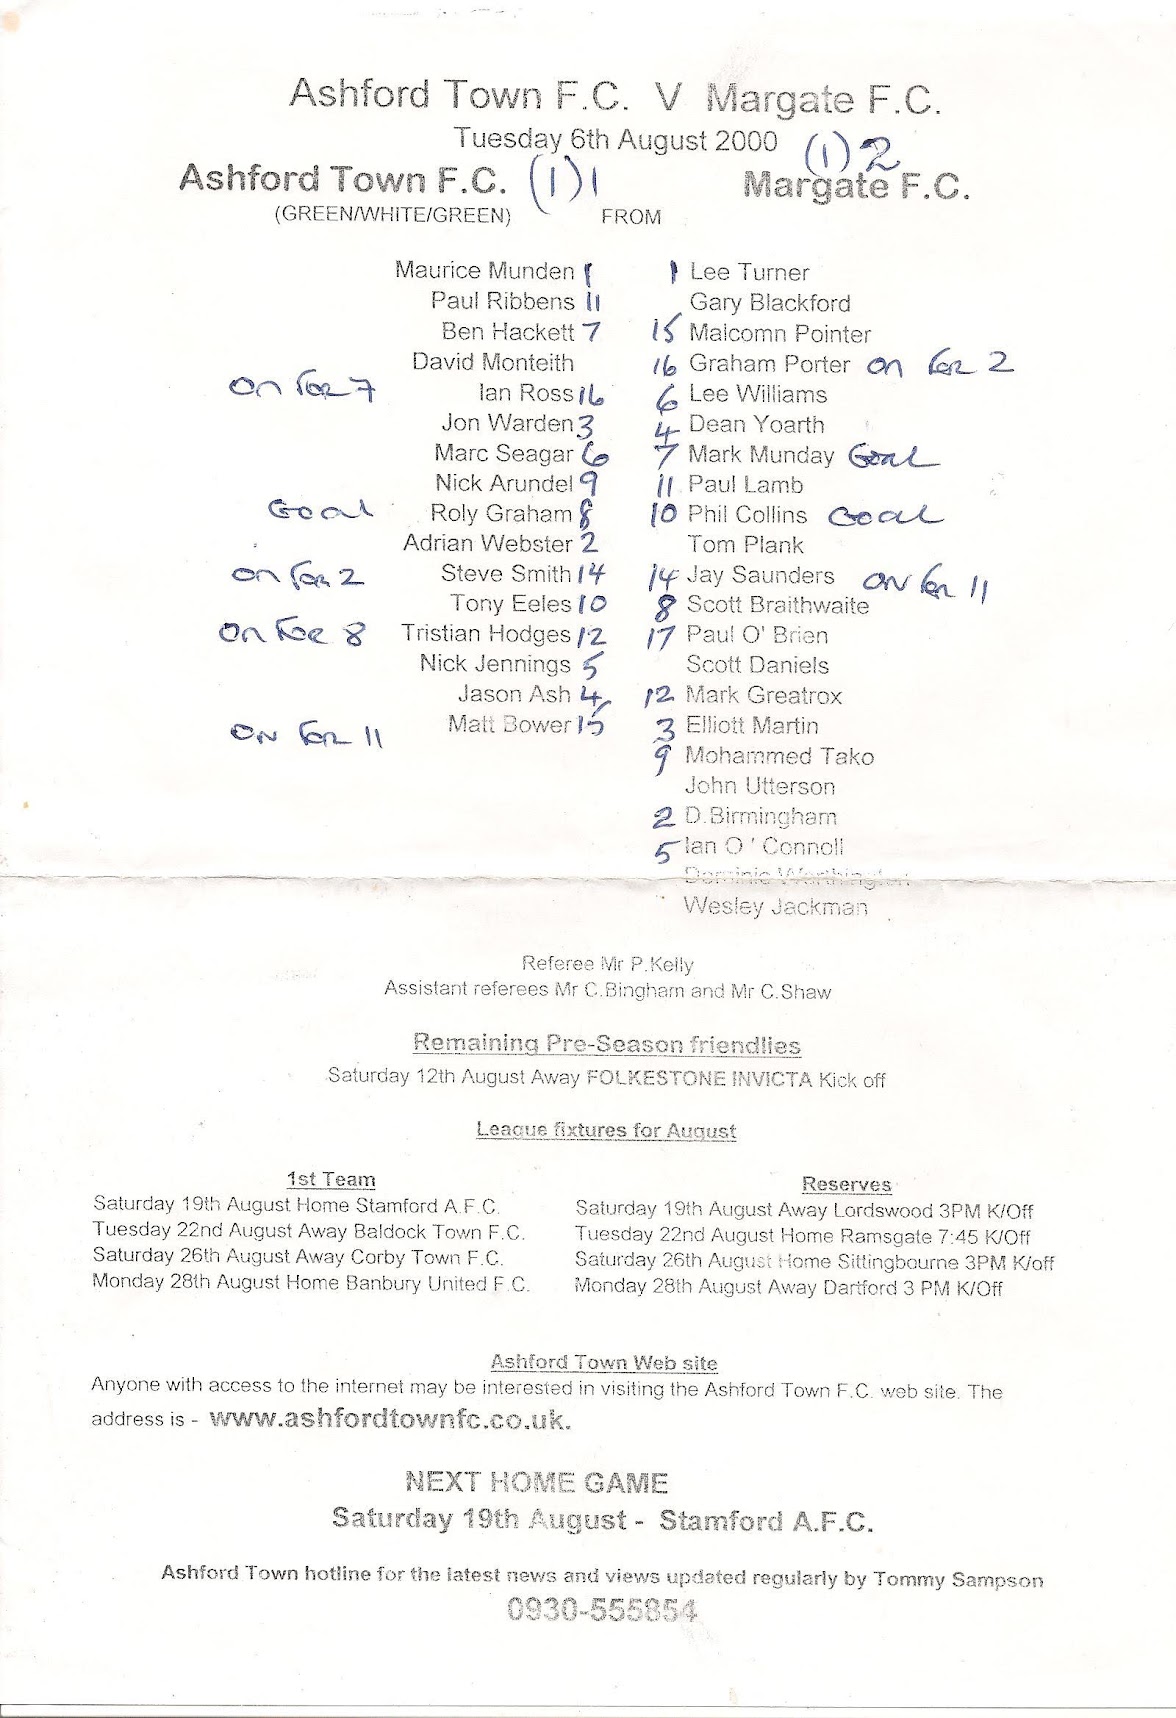 Ashford Town F.C. V Margate F.C.
Tuesday 6th August 2000
(1) 2
Ashford Town F.C. (1) 1 Margate F.C.
(GREEN/WHITE/GREEN) FROM
Maurice Munden 1 1 Lee Turner
Paul Ribbens 11 Gary Blackford
Ben Hackett 7 15 Malcomn Pointer
David Monteith 16 Graham Porter on for 2
on for 7 Ian Ross 16 6 Lee Williams
Jon Warden 3 4 Dean Yoarth
Marc Seagar 6 7 Mark Munday Goal
Nick Arundel 9 11 Paul Lamb
Goal Roly Graham 8 10 Phil Collins Goal
Adrian Webster 2 Tom Plank
on for 2 Steve Smith 14 14 Jay Saunders on for 11
Tony Eeles 10 8 Scott Braithwaite
on for 8 Tristian Hodges 12 17 Paul O' Brien
Nick Jennings 5 Scott Daniels
Jason Ash 4 12 Mark Greatrox
on for 11 Matt Bower 15 3 Elliott Martin
9 Mohammed Tako
John Utterson
2 D.Birmingham
5 Ian O ' Connoll
Dominic Worthington
Wesley Jackman
Referee Mr P.Kelly
Assistant referees Mr C.Bingham and Mr C.Shaw
Remaining Pre-Season friendlies
Saturday 12th August Away FOLKESTONE INVICTA Kick off
League fixtures for August
1st Team
Saturday 19th August Home Stamford A.F.C.
Tuesday 22nd August Away Baldock Town F.C.
Saturday 26th August Away Corby Town F.C.
Monday 28th August Home Banbury United F.C.
Reserves
Saturday 19th August Away Lordswood 3PM K/Off
Tuesday 22nd August Home Ramsgate 7:45 K/Off
Saturday 26th August Home Sittingbourne 3PM K/off
Monday 28th August Away Dartford 3 PM K/Off
Ashford Town Web site
Anyone with access to the internet may be interested in visiting the Ashford Town F.C. web site. The
address is - www.ashfordtownfc.co.uk.
NEXT HOME GAME
Saturday 19th August - Stamford A.F.C.
Ashford Town hotline for the latest news and views updated regularly by Tommy Sampson
0930-555854